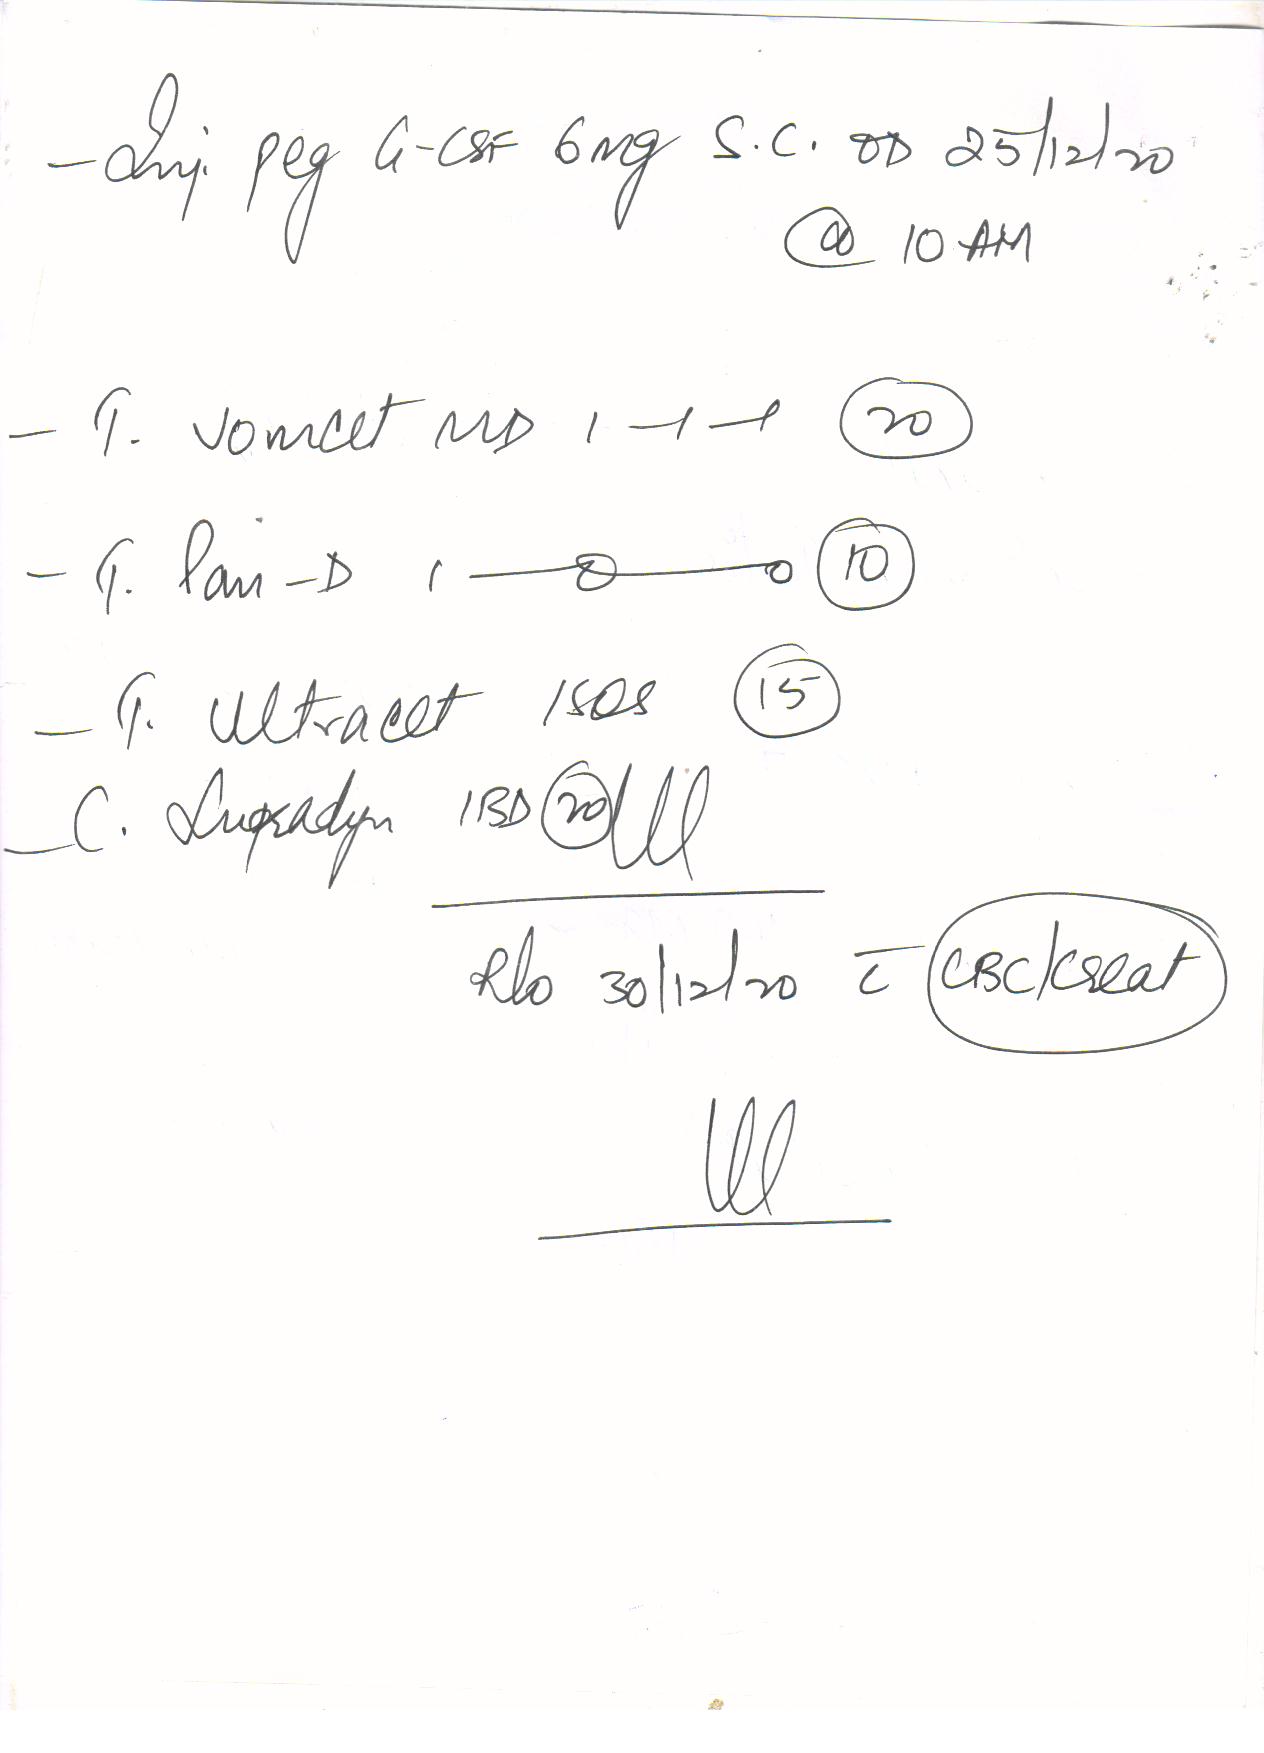 - Inj. peg G-CSF 6mg S.C. OD 25/12/20
@ 10 AM
- T. vomcet MD 1-1-1 20
- T. Pan-D 1-0-0 10
- T. Ultracet 1SOS 15
- C. Supradyn 1BD 20
R/o 30/12/20 c̄ CBC/Creat